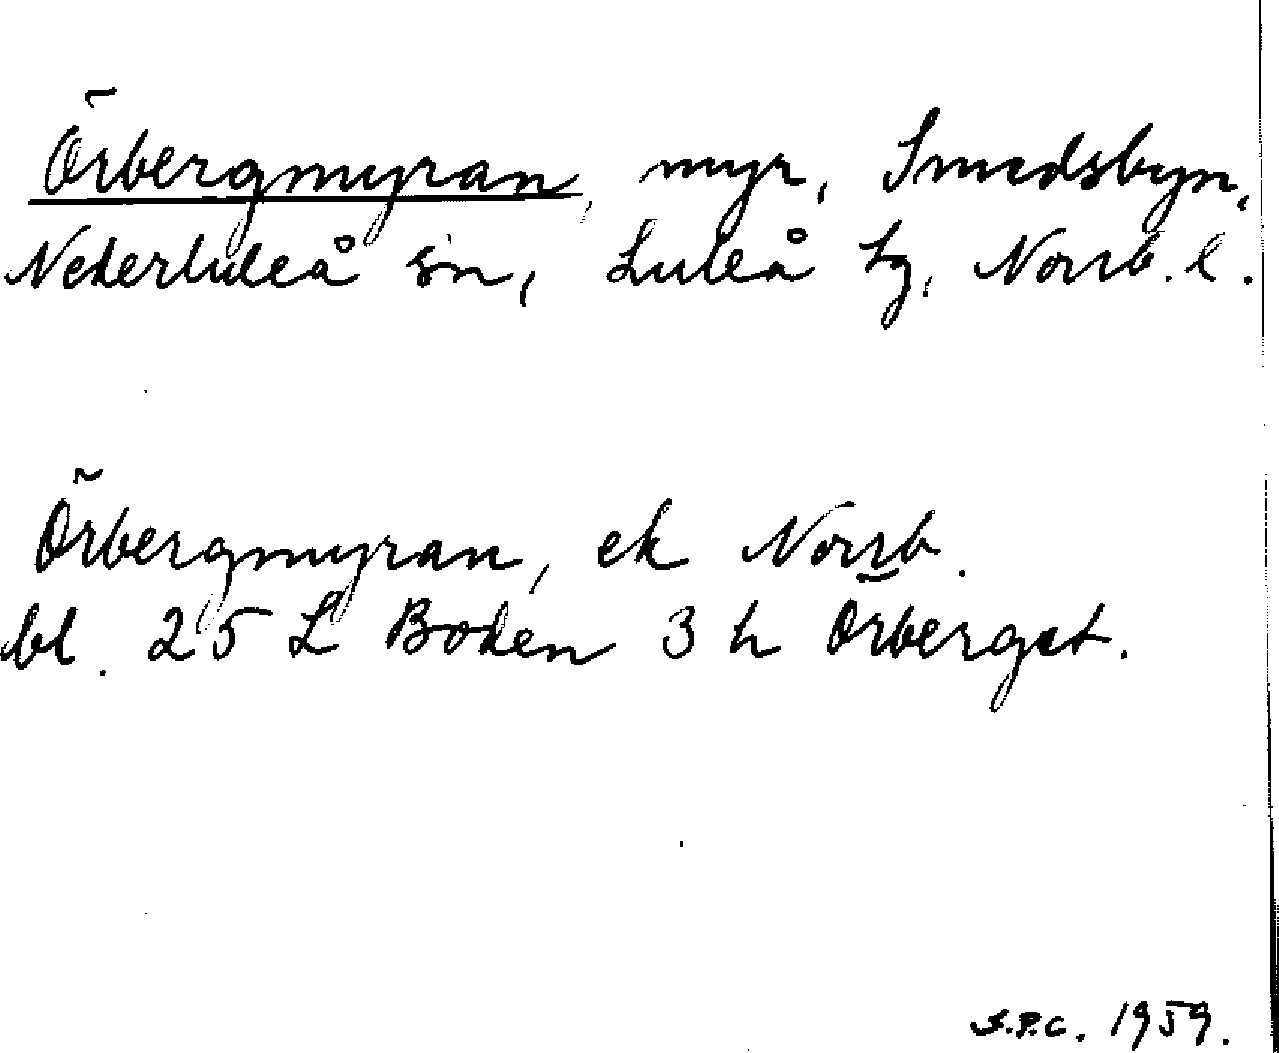 Örbergmyran, myr, Smedsbyn,
Nederluleå sn, Luleå tg, Norrb. l.
Örbergmyran, ek Norrb.
bl. 25 L Boden 3 h Örberget.
S.P.C. 1959.